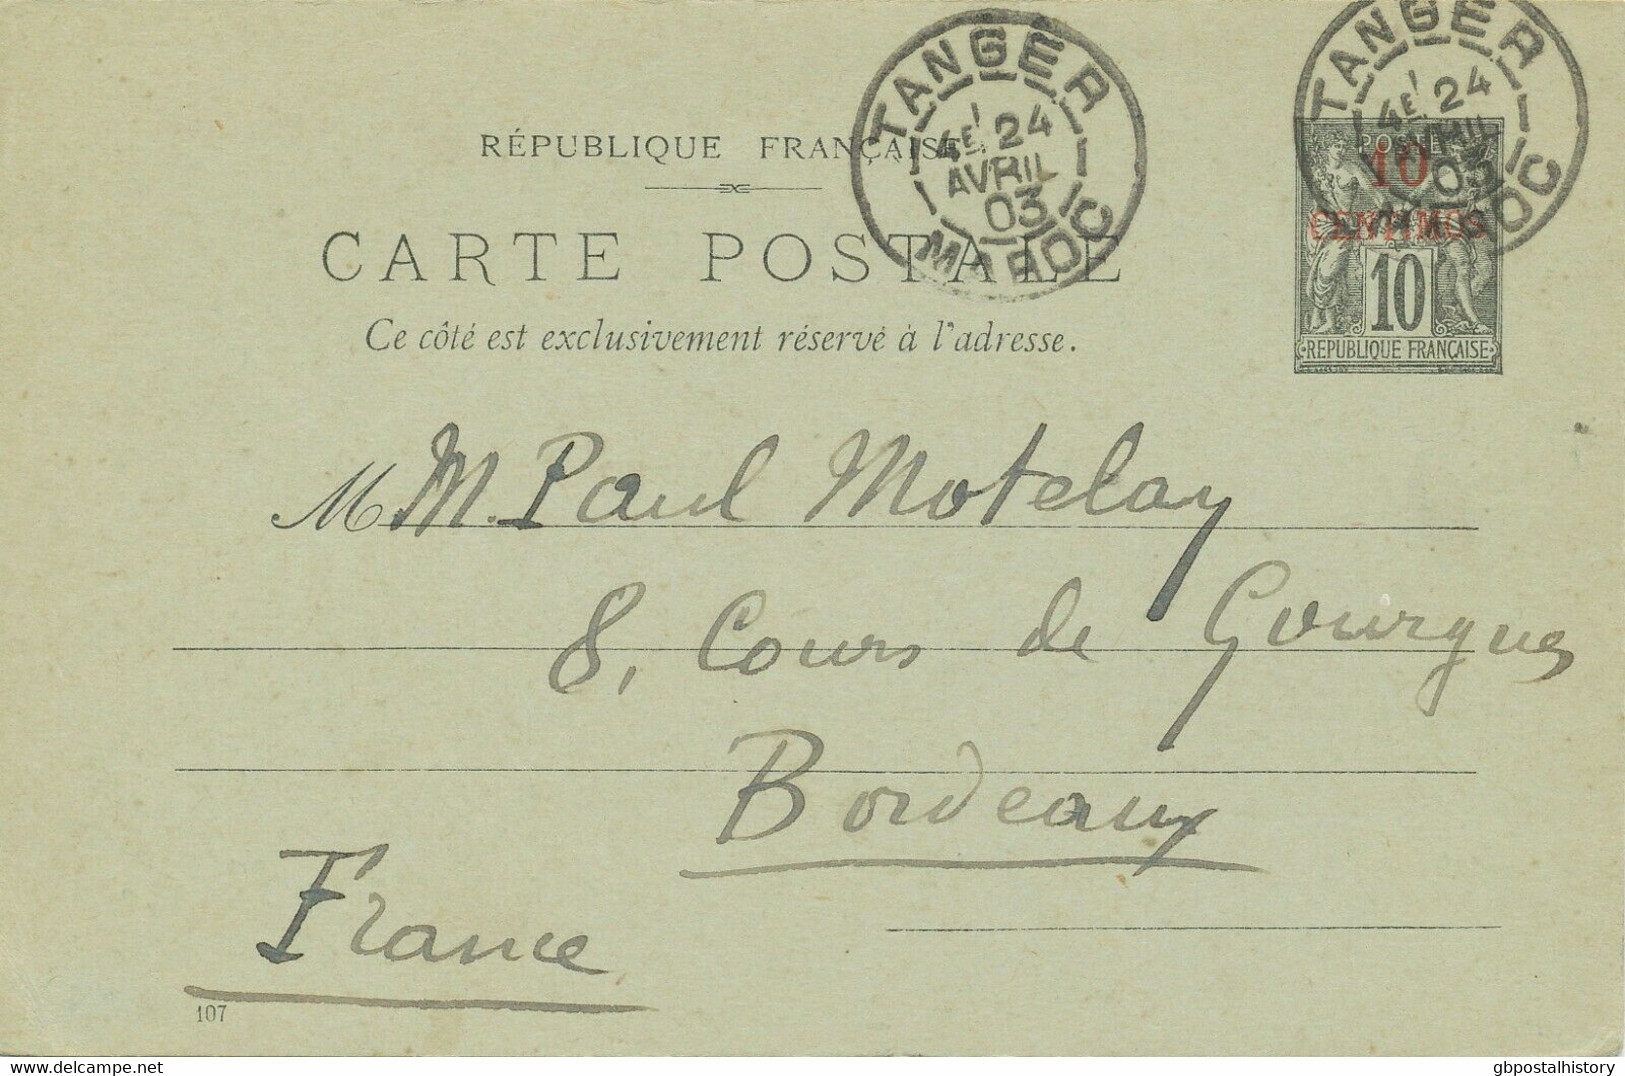 TANGER
4E 24
AVRIL
03
MAROC
TANGER
4E 24
AVRIL
03
MAROC
RÉPUBLIQUE FRANÇAISE
CARTE POSTALE
Ce côté est exclusivement réservé à l'adresse.
POSTE
10
CENTIMOS
10
REPUBLIQUE FRANÇAISE
M M. Paul Motelay
8, Cours de Gourgues
Bordeaux
France
107
delcampe.net
gbpostalhistory